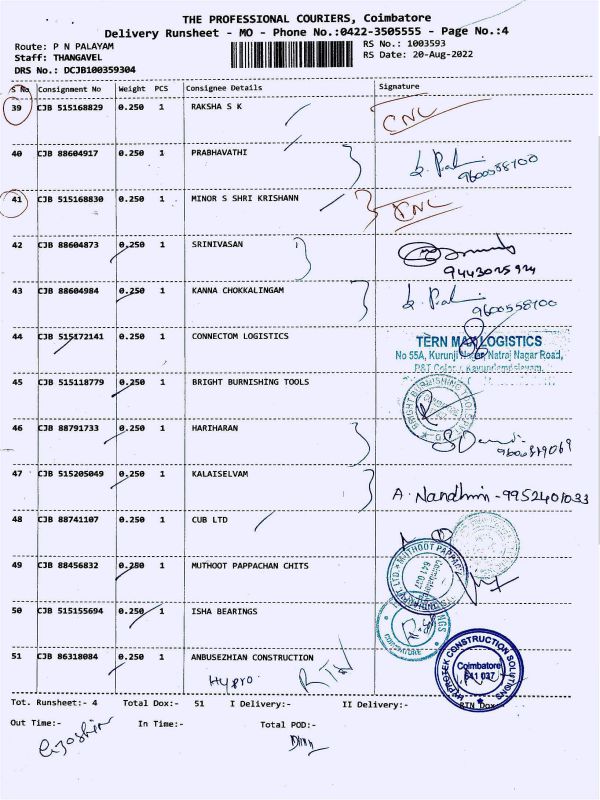 THE PROFESSIONAL COURIERS, Coimbatore
Delivery Runsheet - MO - Phone No.:0422-3505555 - Page No.:4
Route: P N PALAYAM
RS No.: 1003593
Staff: THANGAVEL
RS Date: 20-Aug-2022
DRS No.: DCJB100359304
S No Consignment No Weight PCS Consignee Details Signature
39 CJB 515168829 0.250 1 RAKSHA S K CNL
40 CJB 88604917 0.250 1 PRABHAVATHI
41 CJB 515168830 0.250 1 MINOR S SHRI KRISHANN CNL
42 CJB 88604873 0.250 1 SRINIVASAN
9443025924
43 CJB 88604984 0.250 1 KANNA CHOKKALINGAM 9600558400
44 CJB 515172141 0.250 1 CONNECTOM LOGISTICS TERN MAX LOGISTICS
No 55A, Kurunji Nagar, Natraj Nagar Road,
45 CJB 515118779 0.250 1 BRIGHT BURNISHING TOOLS BRIGHT BURNISHING TOOLS
46 CJB 88791733 0.250 1 HARIHARAN
47 CJB 515205049 0.250 1 KALAISELVAM A. Nandhini - 9952401033
48 CJB 88741107 0.250 1 CUB LTD
49 CJB 88456832 0.250 1 MUTHOOT PAPPACHAN CHITS MUTHOOT PAPPAC
Coimbatore
641 037
50 CJB 515155694 0.250 1 ISHA BEARINGS
51 CJB 86318084 0.250 1 ANBUSEZHIAN CONSTRUCTION HYPROTEK CONSTRUCTION SOLUTIONS
Coimbatore
641 037
Hypro
Tot. Runsheet:- 4 Total Dox:- 51 I Delivery:- II Delivery:- RTN Dox
Out Time:- In Time:- Total POD:-